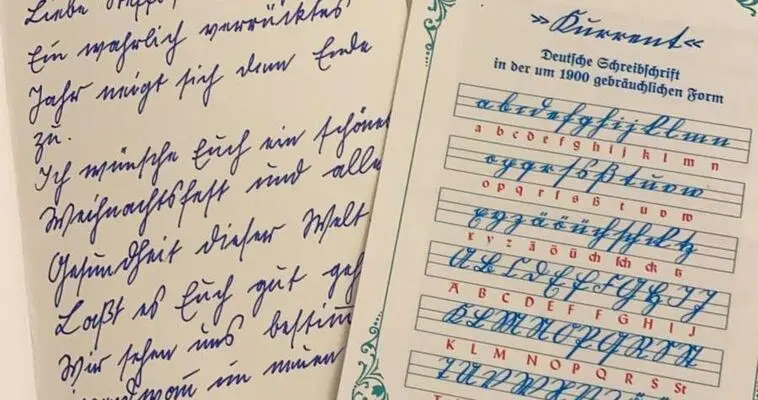 Liebe
Ein wahrlich verrücktes
Jahr neigt sich dem Ende
zu.
Ich wünsche Euch ein schönes
Weihnachtsfest und alle
Gesundheit dieser Welt
Laßt es Euch gut
Wir sehen uns
im neuen
»Kurrent«
Deutsche Schreibschrift
in der um 1900 gebräuchlichen Form
a b c d e f g h i j k l m n
a b c d e f g h i j k l m n
o p q r ſ s ß t u v w
o p q r ſ s ß t u v w
x y z ä ö ü ch ſch ck tz
x y z ä ö ü ch ſch ck tz
A B C D E F G H I J
A B C D E F G H I J
K L M N O P Q R S St
K L M N O P Q R S St
T U V W X Y Z